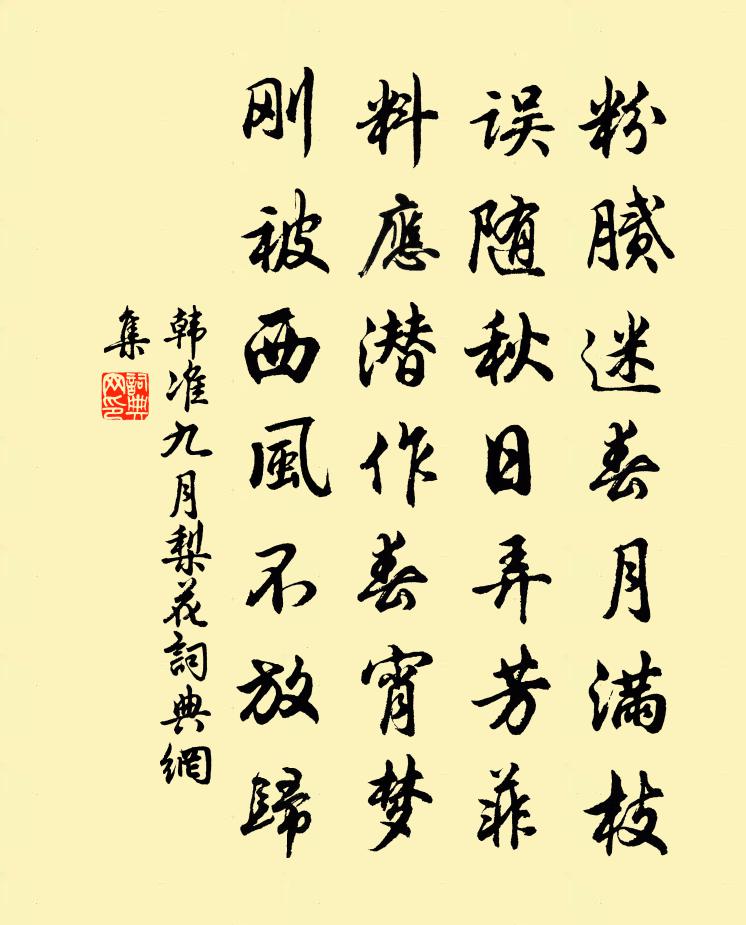 粉膩迷春月滿枝
误随秋日弄芳菲
料應潜作春宵梦
刚被西風不放歸
韩准九月梨花詞典網
集
詞典
网印